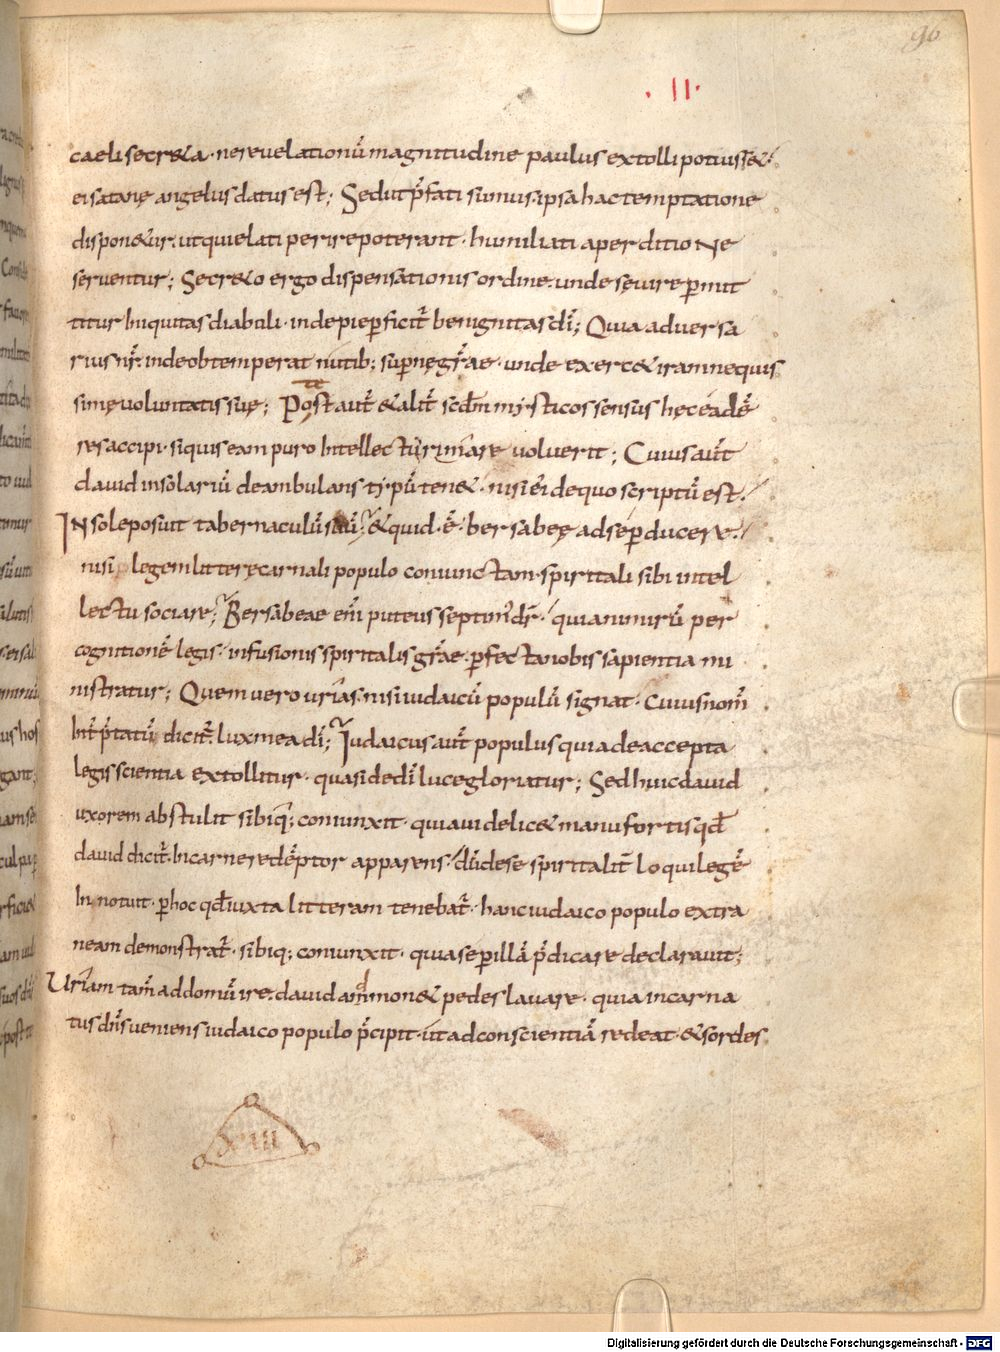 90
·II·
caeli secr&a · ne revelationū magnitudine paulus extolli potuiss&·
ei satanę angelus datus est; Sed ut p̄fati sumus· ipsa hac temptatione
dispon&ur· ut qui elati perire poterant · humiliati a perditione
serventur; Secr&o ergo dispensationis ordine· unde sevire p̲mit
titur Iniquitas diaboli · inde pie p̲ficit̄ benignitas dī; Quia adversa
rius nr̄· inde obtemperat nutib; sup̲nę gr̄ae · unde exerc& iram nequis
simę voluntatis suę; Potest aut̄ & alit̄ scdm̄ mysticos sensus hęc eadē
res accipi · si quis eam puro Intellectu rimare voluerit; Cuius aut̄
david in solariū deambulans typū ten& · nisi ei' de quo scriptū est·
IN sole posuit tabernaculū suū; & quid · ē · bersabeę ad se p̲ducere·
nisi legem litterę carnali populo coniunctam · spiritali sibi intel
lectu sociare; Bersabeae em̄ puteus septim' dr̄ · quia nimirū per
cognitionē legis · infusionis spiritalis gr̄ae · p̲fecta nobis sapientia mi
nistratur; Quem vero urias · nisi iudaicū populū signat · Cuius nom̄
Int̄p̄tatū dicit̄· lux mea dī; Iudaicus aut̄ populus quia de accepta
legis scientia extollitur · quasi de dī luce gloriatur; Sed huic david
uxorem abstulit sibiq; coniunxit · quia videlic& manu fortis qđ
david dicit̄· In carne redēptor apparens · dū de se spiritalit̄ loqui legē
Innotuit · p̲ hoc qđ iuxta litteram tenebat̄ · hanc iudaico populo extra
neam demonstrat̄ · sibiq; coniunxit · quia se p̲ illā p̄dicare declaravit;
Uriam tam̄ ad domū ire· david ammon& pedes lavare · quia incarna
tus dn̄s veniens iudaico populo p̄cipit · ut ad conscientiā redeat · & sordes
XIII
Digitalisierung gefördert durch die Deutsche Forschungsgemeinschaft - DFG